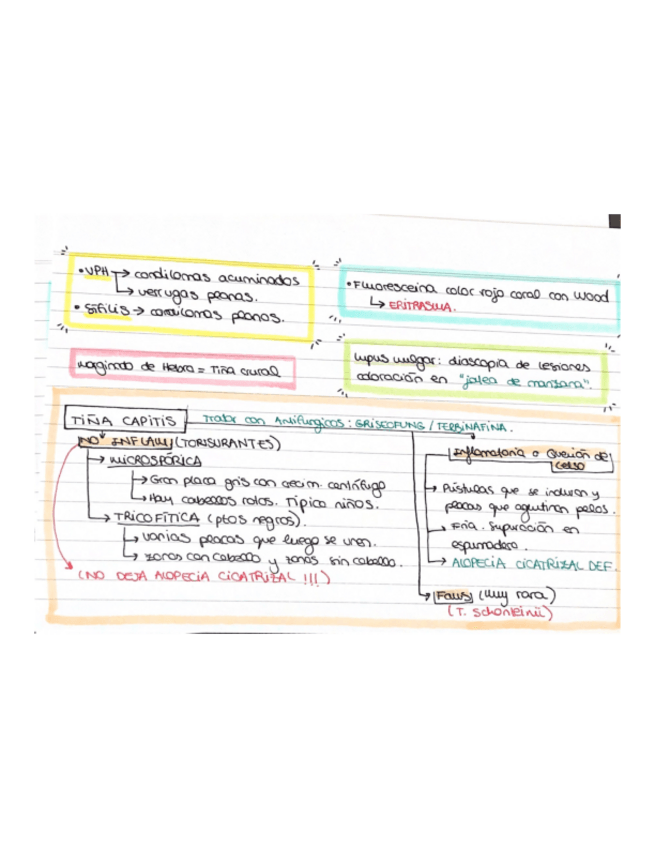 • VPH → condilomas acuminados
↳ verrugas planas.
• Sífilis → condilomas planos.
• Fluoresceína color rojo coral con Wood
↳ ERITRASMA.
Marginado de Hebra = Tiña crural
Lupus vulgar: diascopia de lesiones
coloración en "jalea de manzana".
TIÑA CAPITIS Tratar con Antifúngicos: GRISEOFUNG / TERBINAFINA.
NO INFLAM (TONSURANTES)
→ MICROSPÓRICA
↳ Gran placa gris con crecim. centrífugo
↳ Hay cabellos rotos. Típico niños.
→ TRICOFÍTICA (ptos negros).
↳ varias placas que luego se unen.
↳ zonas con cabello y zonas sin cabello.
(NO DEJA ALOPECIA CICATRIZAL !!!)
Inflamatoria o Querión de
Celso
→ Pústulas que se induran y
placas que aglutinan pelos.
→ Fría. Supuración en
espumadera.
→ ALOPECIA CICATRIZAL DEF.
→ Favus (muy rara)
(T. Schönleinii)